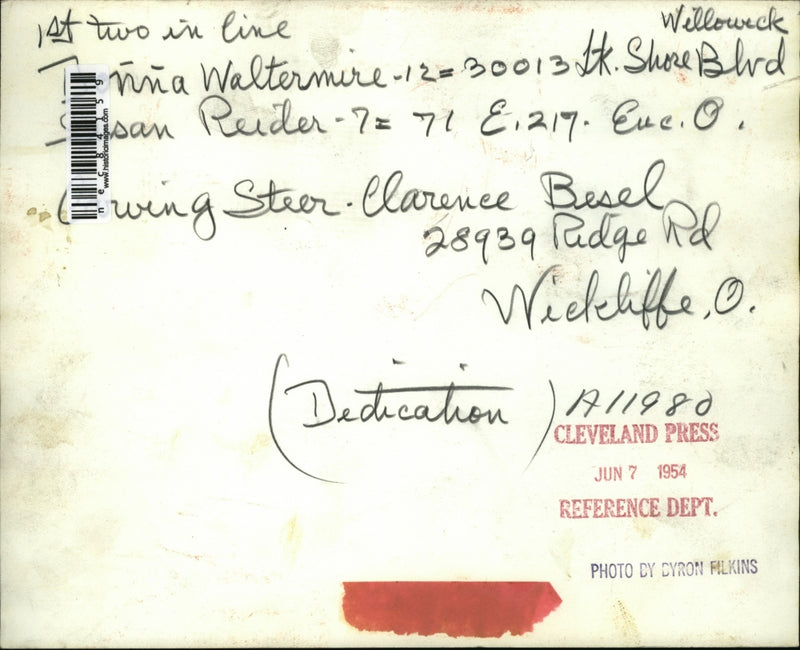 1st two in line
Willowick
Donna Waltermire - 12 = 30013 Lk. Shore Blvd
Susan Reider - 7 = 71 E. 217. Euc. O.
Carving Steer. Clarence Besel
28939 Ridge Rd
Wickliffe, O.
(Dedication)
A11980
CLEVELAND PRESS
JUN 7 1954
REFERENCE DEPT.
PHOTO BY BYRON FILKINS
www.historicimages.com
nec84159